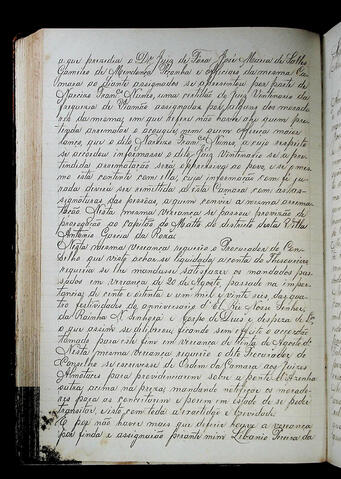 a que presidiu o Dr. Juiz de Fora José Maria de Salles
Gameiro de Mendonça Peçanha e officiaes da mesma Ca-
mara ao diante assignados se apresentou por parte de
Narciza Nunes, uma certidão do Juiz Ventenario da
freguezia de Viamão assignada por alguns dos morado-
res da mesma, em que refere não haver ahi quem pre-
tenda arrematar o açougue, nem quem offereça maior
lanço, que o dito Narcizo Nunes, a cujo respeito
se accordou informasse o dito Juiz Ventenario se a pre-
tendida arrematação será offensiva ao povo, e o mes-
mo está contente com ella, cuja informação com fé ju-
rada deverá ser remettida a esta Camara com as as-
signaturas das pessoas, a quem convir a mesma arrema-
tação. Nesta mesma vereança se passou provisão de
prorogação ao Capitão do Matto do districto desta Villa
Antonio Garcia da Roza.
Nesta mesma vereança requereu o Procurador do Con-
selho que visto achar-se liquidada a conta do Thesoureiro
requeria se lhe mandasse satisfazer os mandados pas-
sados em vereança de 20 de Agosto, passado na impor-
tancia de cento e oitenta e um mil e vinte reis das qua-
tro festividades do anniversario d'El Rei Nosso Senhor,
da Rainha N. Senhora e Corpo de Deus e despeza de
o que assim se deliberou, ficando sem effeito o accordão
tomado para este fim em vereança de trinta de Agosto dº
Nesta mesma vereança requereu o dito Procurador do
Conselho se escrevesse de Ordem da Camara aos Juizes
Almotaces para promptificarem sobre a ponte d'Azenha
outra acima na preza, mandando notificar os morado-
res para as concertarem e porem em estado de se poder
transitar, visto com toda a exactidão e brevidade.
E por não haver mais que deferir houve a vereança
por finda e assignarão perante mim Libanio Pereira da